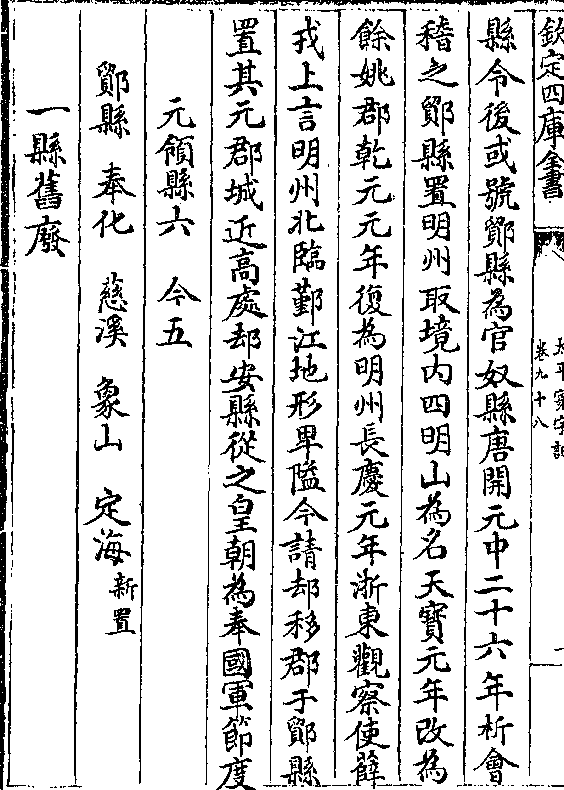 欽定四庫全書
太平寰宇記
卷九十八
縣令後或號鄮縣為官奴縣唐開元中二十六年析會
稽之鄮縣置明州取境内四明山為名天寶元年改為
餘姚郡乾元元年復為明州長慶元年浙東觀察使薛
戎上言明州北臨鄞江地形卑隘今請却移郡于鄮縣
置其元郡城近高處却安縣從之皇朝為奉國軍節度
元領縣六 今五
鄮縣 奉化 慈溪 象山 定海新置
一縣舊廢